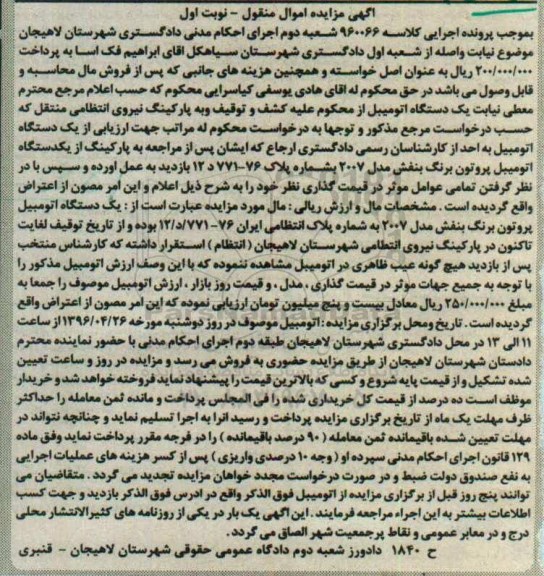 آگهی مزایده اموال منقول - نوبت اول
بموجب پرونده اجرایی کلاسه ۹۶۰۰۶۶ شعبه دوم اجرای احکام مدنی دادگستری شهرستان لاهیجان
موضوع نیابت واصله از شعبه اول دادگستری شهرستان سیاهکل اقای ابراهیم فک اسا به پرداخت
۲۰۰/۰۰۰/۰۰۰ ریال به عنوان اصل خواسته و همچنین هزینه های جانبی که پس از فروش مال محاسبه و
قابل وصول می باشد در حق محکوم له اقای هادی یوسفی کیاسرایی محکوم که حسب اعلام مرجع محترم
معطی نیابت یک دستگاه اتومبیل از محکوم علیه کشف و توقیف وبه پارکینگ نیروی انتظامی منتقل که
حسب درخواست مرجع مذکور و توجها به درخواست محکوم له مراتب جهت ارزیابی از یک دستگاه
اتومبیل به احد از کارشناسان رسمی دادگستری ارجاع که ایشان پس از مراجعه به پارکینگ از یکدستگاه
اتومبیل پروتون برنگ بنفش مدل ۲۰۰۷ بشماره پلاک ۷۶-۷۷۱ د ۱۲ بازدید به عمل اورده و سپس با در
نظر گرفتن تمامی عوامل موثر در قیمت گذاری نظر خود را به شرح ذیل اعلام و این امر مصون از اعتراض
واقع گردیده است . مشخصات مال و ارزش ریالی : مال مورد مزایده عبارت است از : یک دستگاه اتومبیل
پروتون برنگ بنفش مدل ۲۰۰۷ به شماره پلاک انتظامی ایران ۷۶-۷۷۱/د/۱۲ بوده و از تاریخ توقیف لغایت
تاکنون در پارکینگ نیروی انتظامی شهرستان لاهیجان (انتظام ) استقرار داشته که کارشناس منتخب
پس از بازدید هیچ گونه عیب ظاهری در اتومیبل مشاهده ننموده که با این وصف ارزش اتومبیل مذکور را
با توجه به جمیع جهات موثر در قیمت گذاری ، مدل ، و قیمت روز بازار ، ارزش اتومبیل موصوف را جمعا به
مبلغ ۲۵۰/۰۰۰/۰۰۰ ریال معادل بیست و پنج میلیون تومان ارزیابی نموده که این امر مصون از اعتراض واقع
گردیده است . تاریخ ومحل برگزاری مزایده : اتومبیل موصوف در روز دوشنبه مورخه ۱۳۹۶/۰۴/۲۶ از ساعت
۱۱ الی ۱۳ در محل دادگستری شهرستان لاهیجان طبقه دوم اجرای احکام مدنی با حضور نماینده محترم
دادستان شهرستان لاهیجان از طریق مزایده حضوری به فروش می رسد و مزایده در روز و ساعت تعیین
شده تشکیل و از قیمت پایه شروع و کسی که بالاترین قیمت را پیشنهاد نماید فروخته خواهد شد و خریدار
موظف است ده درصد از قیمت کل خریداری شده را فی المجلس پرداخت و مانده ثمن معامله را حداکثر
ظرف مهلت یک ماه از تاریخ برگزاری مزایده پرداخت و رسید انرا به اجرا تسلیم نماید و چنانچه نتواند در
مهلت تعیین شده باقیمانده ثمن معامله ( ۹۰ درصد باقیمانده ) را در فرجه مقرر پرداخت نماید وفق ماده
۱۲۹ قانون اجرای احکام مدنی سپرده او ( وجه ۱۰ درصدی واریزی ) پس از کسر هزینه های عملیات اجرایی
به نفع صندوق دولت ضبط و در صورت درخواست مجدد خواهان مزایده تجدید می گردد . متقاضیان می
توانند پنج روز قبل از برگزاری مزایده از اتومبیل فوق الذکر واقع در ادرس فوق الذکر بازدید و جهت کسب
اطلاعات بیشتر به این اجراء مراجعه فرمایند . این آگهی یک بار در یکی از روزنامه های کثیرالانتشار محلی
درج و در معابر عمومی و نقاط پرجمعیت شهر الصاق می گردد.
ح ۱۸۴۰ دادورز شعبه دوم دادگاه عمومی حقوقی شهرستان لاهیجان - قنبری